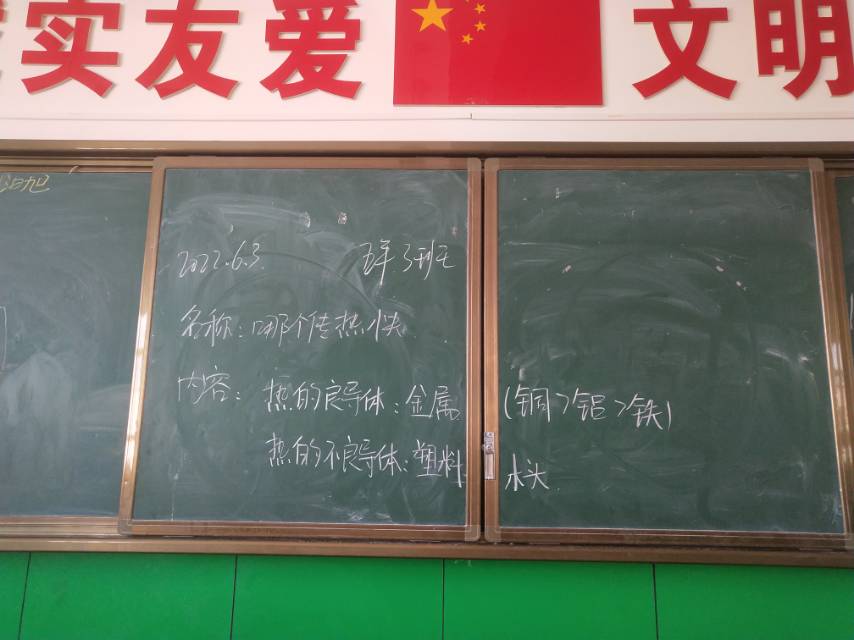 实友爱 文明
旭
2022.6.3. 五年3班
名称：哪个传热快
内容：热的良导体：金属 (铜>铝>铁)
热的不良导体：塑料 木头